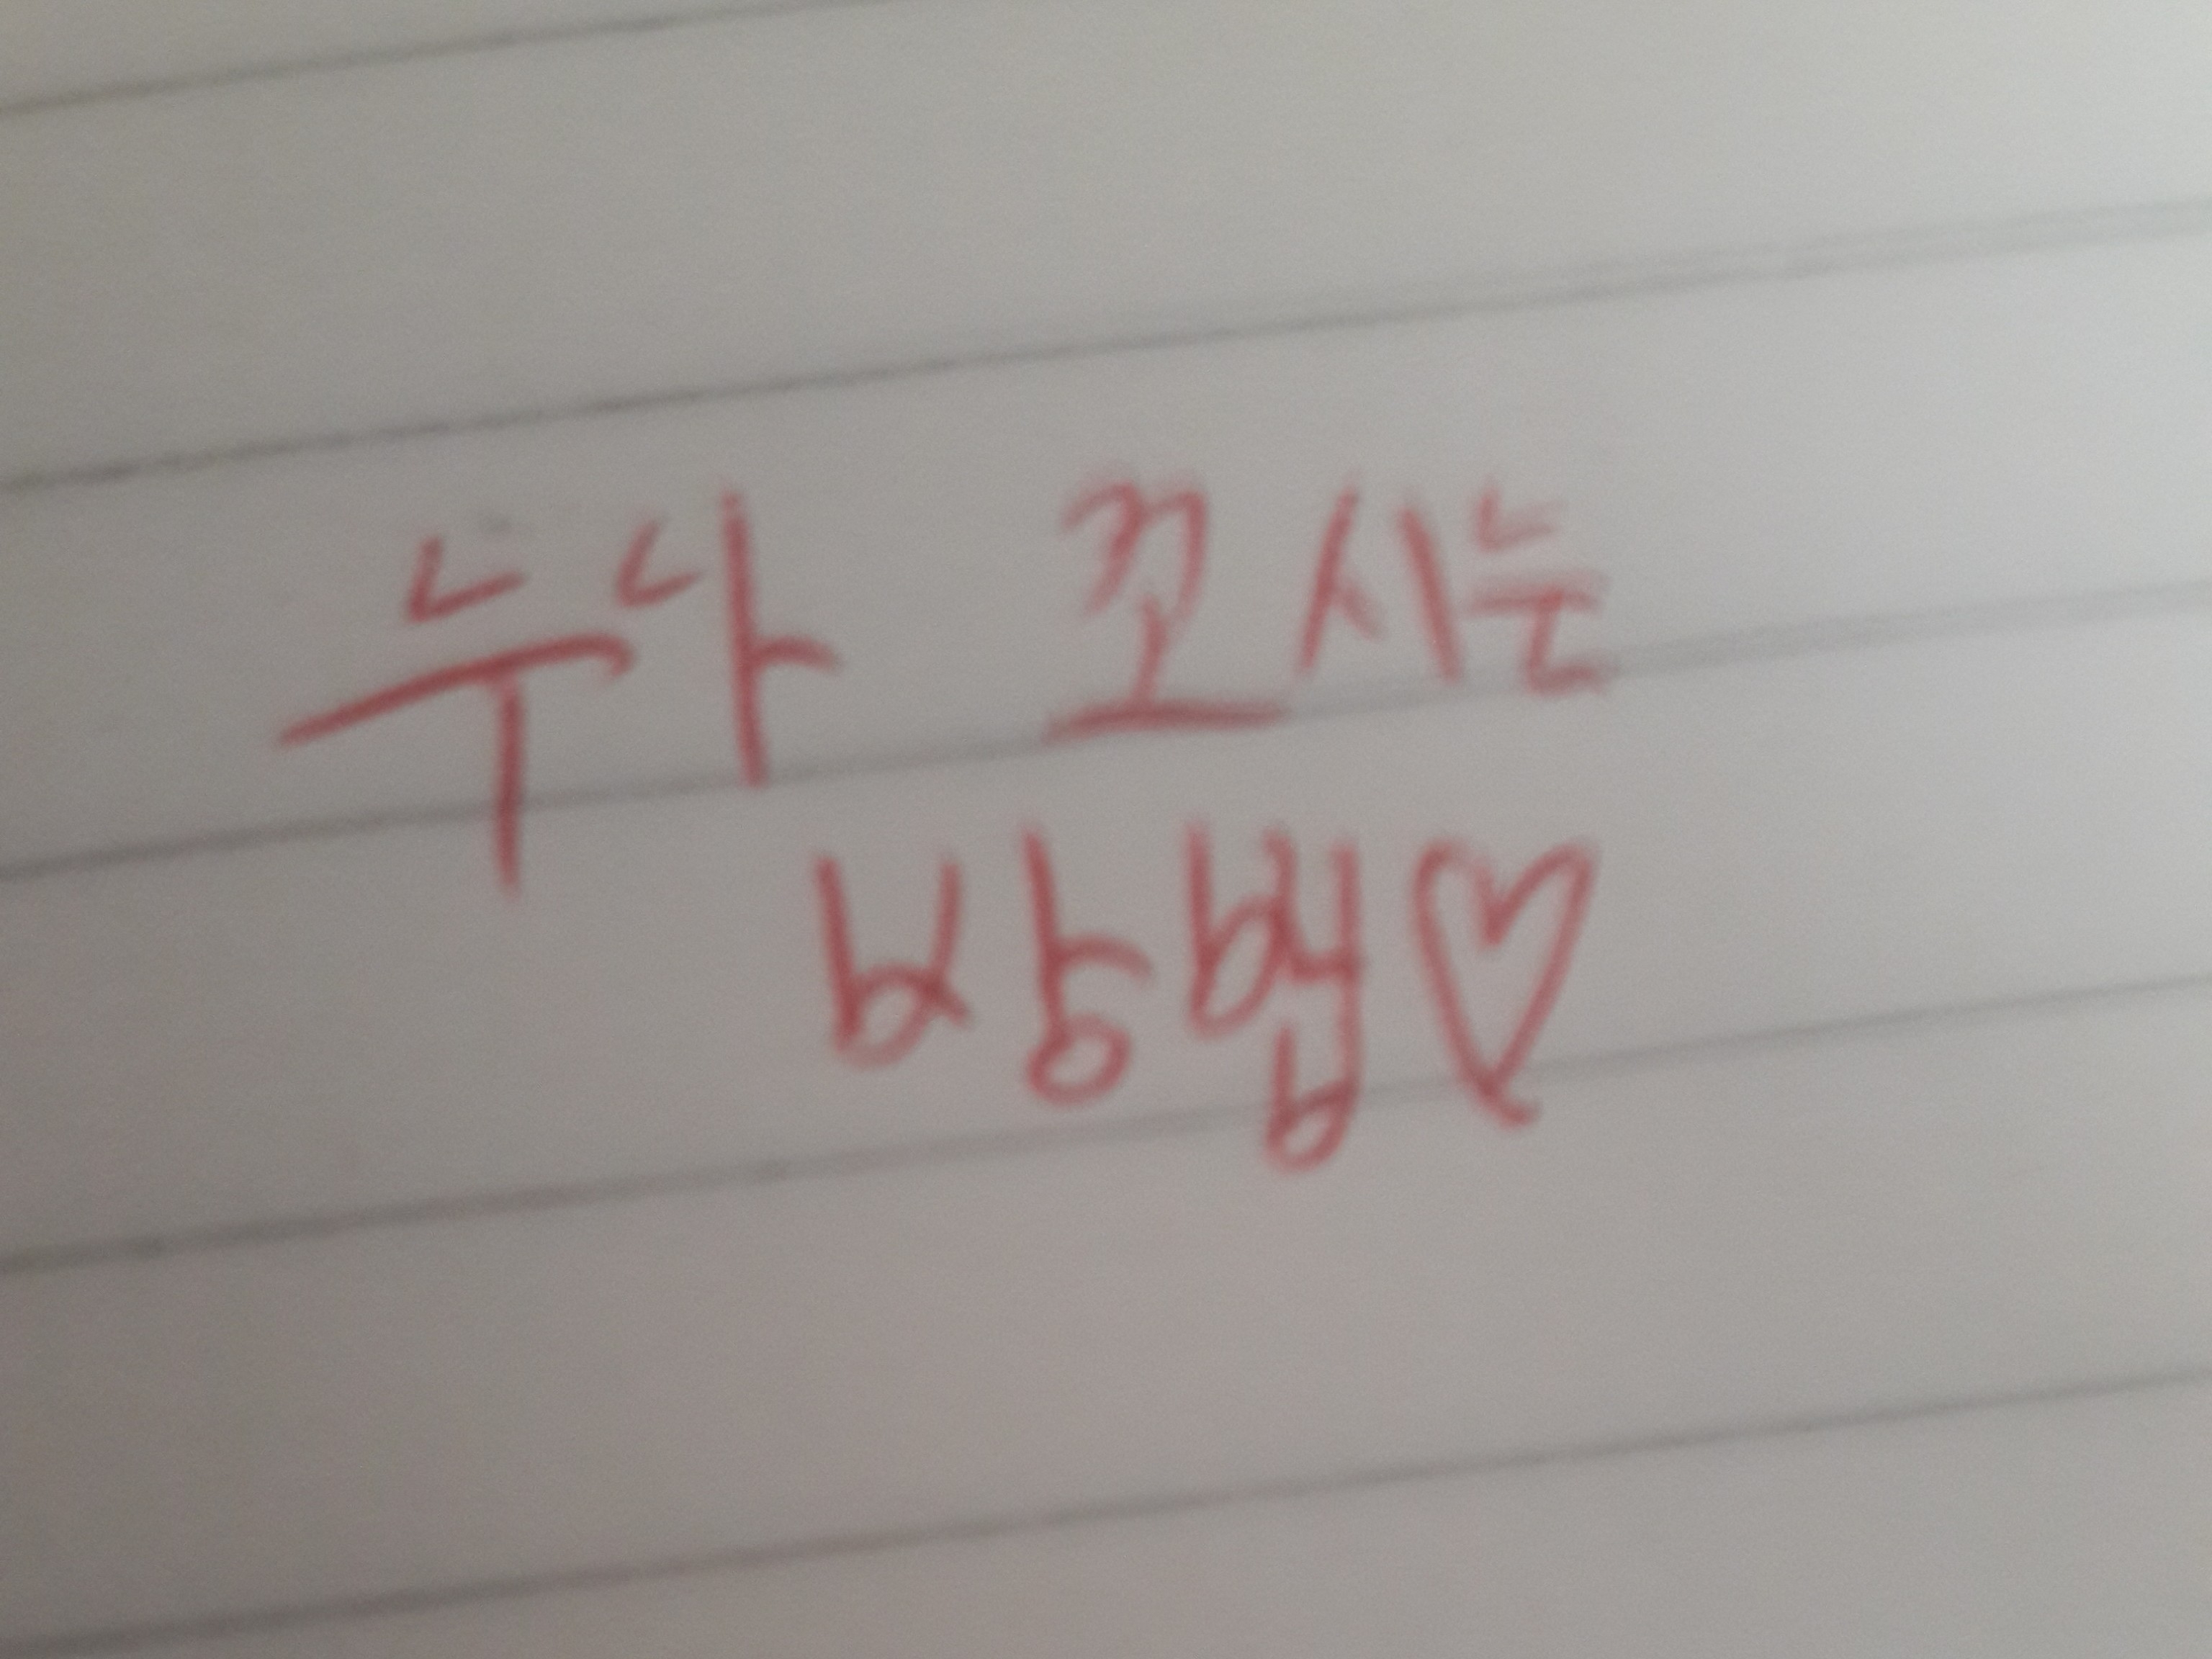 누나 꼬시는
방법♡